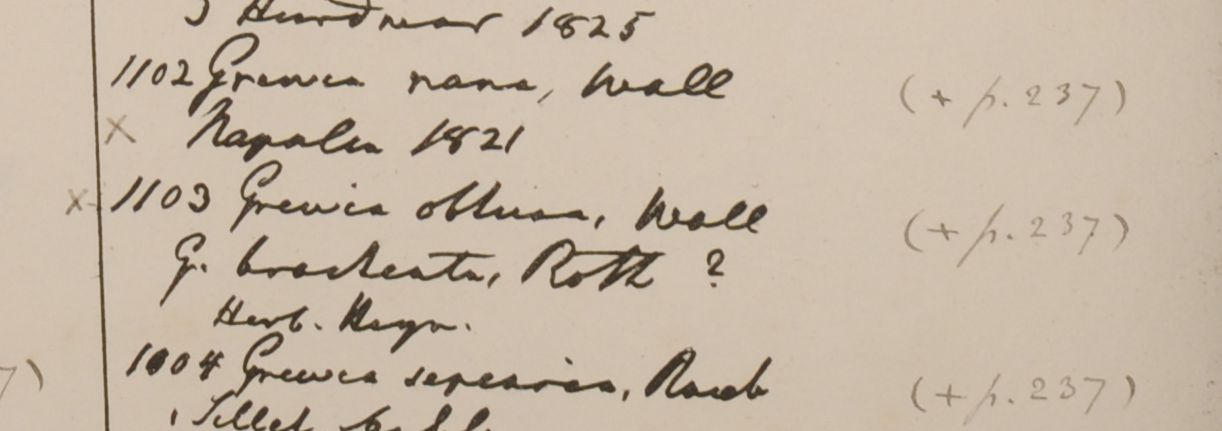 3 Hurdwar 1825
1102 Grewia nana, Wall (+ p. 237)
X Napalia 1821
X- 1103 Grewia obtusa, Wall (+ p. 237)
G. bracteata, Roth ?
Herb. Heyn.
1004 Grewia sepiaria, Roxb (+ p. 237)
7)